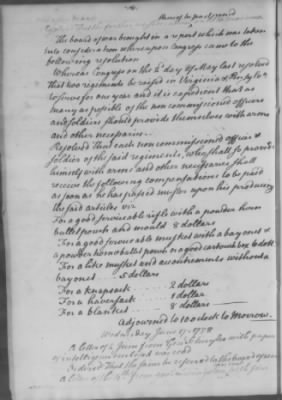 The board of war brought in a report which was taken
into consideration whereupon Congress came to the
following resolution
Whereas Congress on the day of May last resolved
that two regiments be raised in Virginia &
to serve for one year and it is expedient that as
many as possible of the non commissioned officers
and soldiers should provide themselves with arms
and other necessaries.
Resolved That each non commissioned officer &
soldier of the said regiments, who shall so provide
himself with arms and other necessaries shall
receive the following compensations to be paid
as soon as he has passed muster upon his producing
the said articles viz
For a good serviceable rifle with a powder horn
bullet pouch and mould 8 dollars
For a good serviceable musket with a bayonet &
a powder horn & bullet pouch or a good cartouch box 6 doll.
For a like musket and accoutrements without a
bayonet 5 dollars
For a knapsack 2 dollars
For a haversack 1 dollar
For a blanket 8 dollars
Adjourned to 10 oClock to Morrow.
Wednesday June 17. 1778
A letter of from with papers
of intelligence was read
Ordered That the same be referred to the board of war
A letter of the from